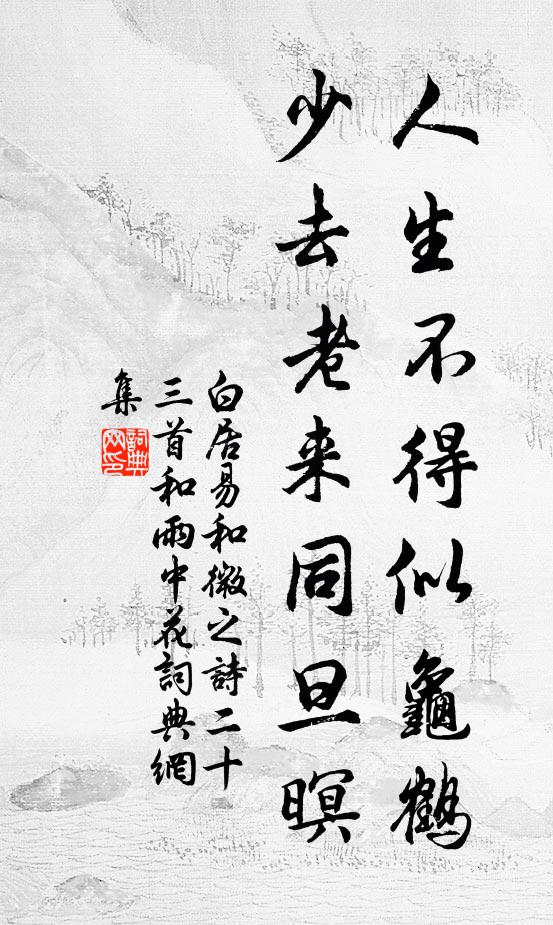 人生不得似龜鶴
少去老来同旦暝
白居易和微之詩二十
三首和雨中花詞典網
集
詞典
网印